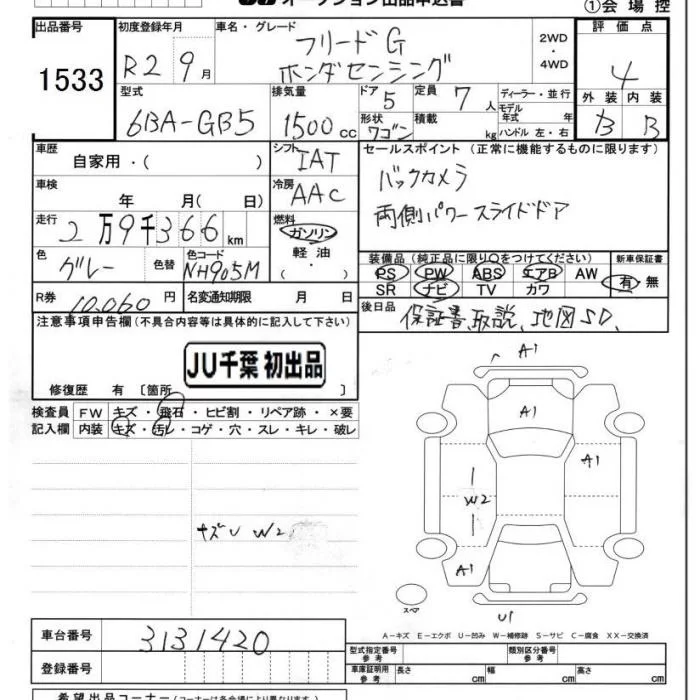 オークション出品申込書
①会場控
出品番号 初度登録年月 車名・グレード 評価点
1533
R2 9月
フリードG
ホンダセンシング
2WD
・
4WD
4
型式 排気量 ドア 5 定員 7人 ディーラー・並行 外装 内装
6BA-GB5 1500cc 形状 ワゴン 積載 kg モデル年式 年 B B
ハンドル 左・右
車歴 自家用・( ) シフト IAT セールスポイント (正常に機能するものに限ります)
車検 年 月(日) 冷房 AAC
バックカメラ
両側パワースライドドア
走行 2万9千366km 燃料 ガソリン
軽油
( ・ )
色 グレー 色替 色コード NH905M
装備品 (純正品に限り○をつけてください) 新車保証書
PS PW ABS エアB AW 有・無
SR ナビ TV カワ
R券 10,060円 名変通知期限 月 日
後日品 保証書、取説、地図SD、
注意事項申告欄(不具合内容等は具体的に記入して下さい)
JU千葉 初出品
修復歴 有 〔箇所 〕
検査員記入欄 FW キズ・飛石・ヒビ割・リペア跡・×要
内装 キズ・汚レ・コゲ・穴・スレ・キレ・破レ
A1
A1
A1
W2
A1
U1
スペア
A-キズ E-エクボ U-凹み W-補修跡 S-サビ C-腐食 XX-交換済
車台番号 3131420
登録番号
型式指定番号 参考 類別区分番号 参考
車庫証明用 参考 長さ cm 幅 cm 高さ cm
希望出品コーナー(コーナーは各会場により異なります)